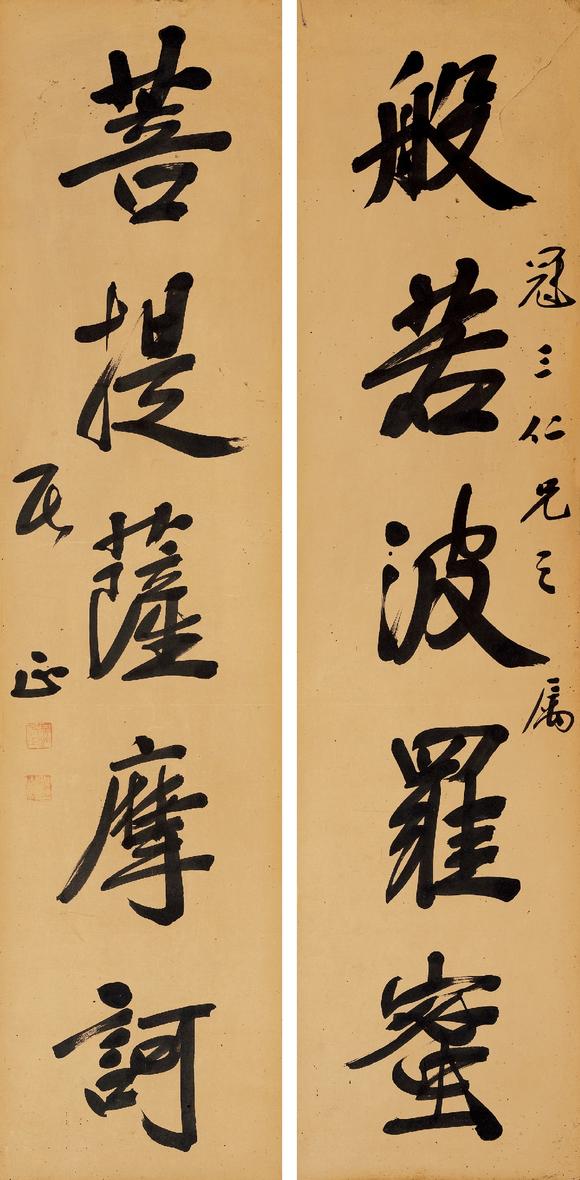 般若波羅蜜
冠三仁兄之属
菩提薩摩訶
居正